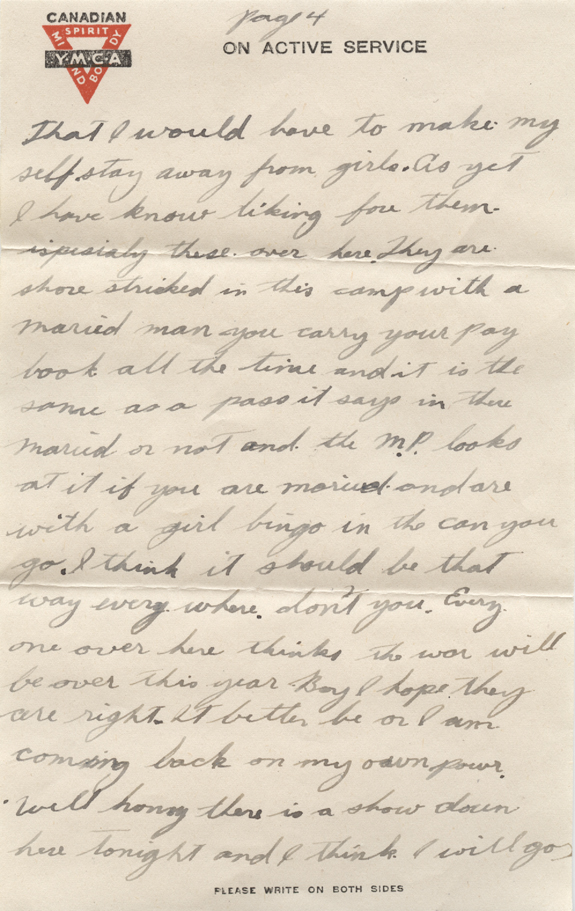 page 4
CANADIAN
SPIRIT
MIND
BODY
Y·M·C·A
ON ACTIVE SERVICE
That I would have to make my
self stay away from girls. As yet
I have know liking for them
ispicialy these over here. They are
shore stricked in this camp with a
maried man you carry your pay
book all the time and it is the
same as a pass it says in there
maried or not and the M.P. looks
at it if you are maried and are
with a girl bingo in the can you
go. I think it should be that
way every where. don't you. Every
one over here thinks the war will
be over this year Boy I hope they
are right. It better be or I am
coming back on my own powr.
Well honny there is a show down
here tonight and I think I will go
PLEASE WRITE ON BOTH SIDES